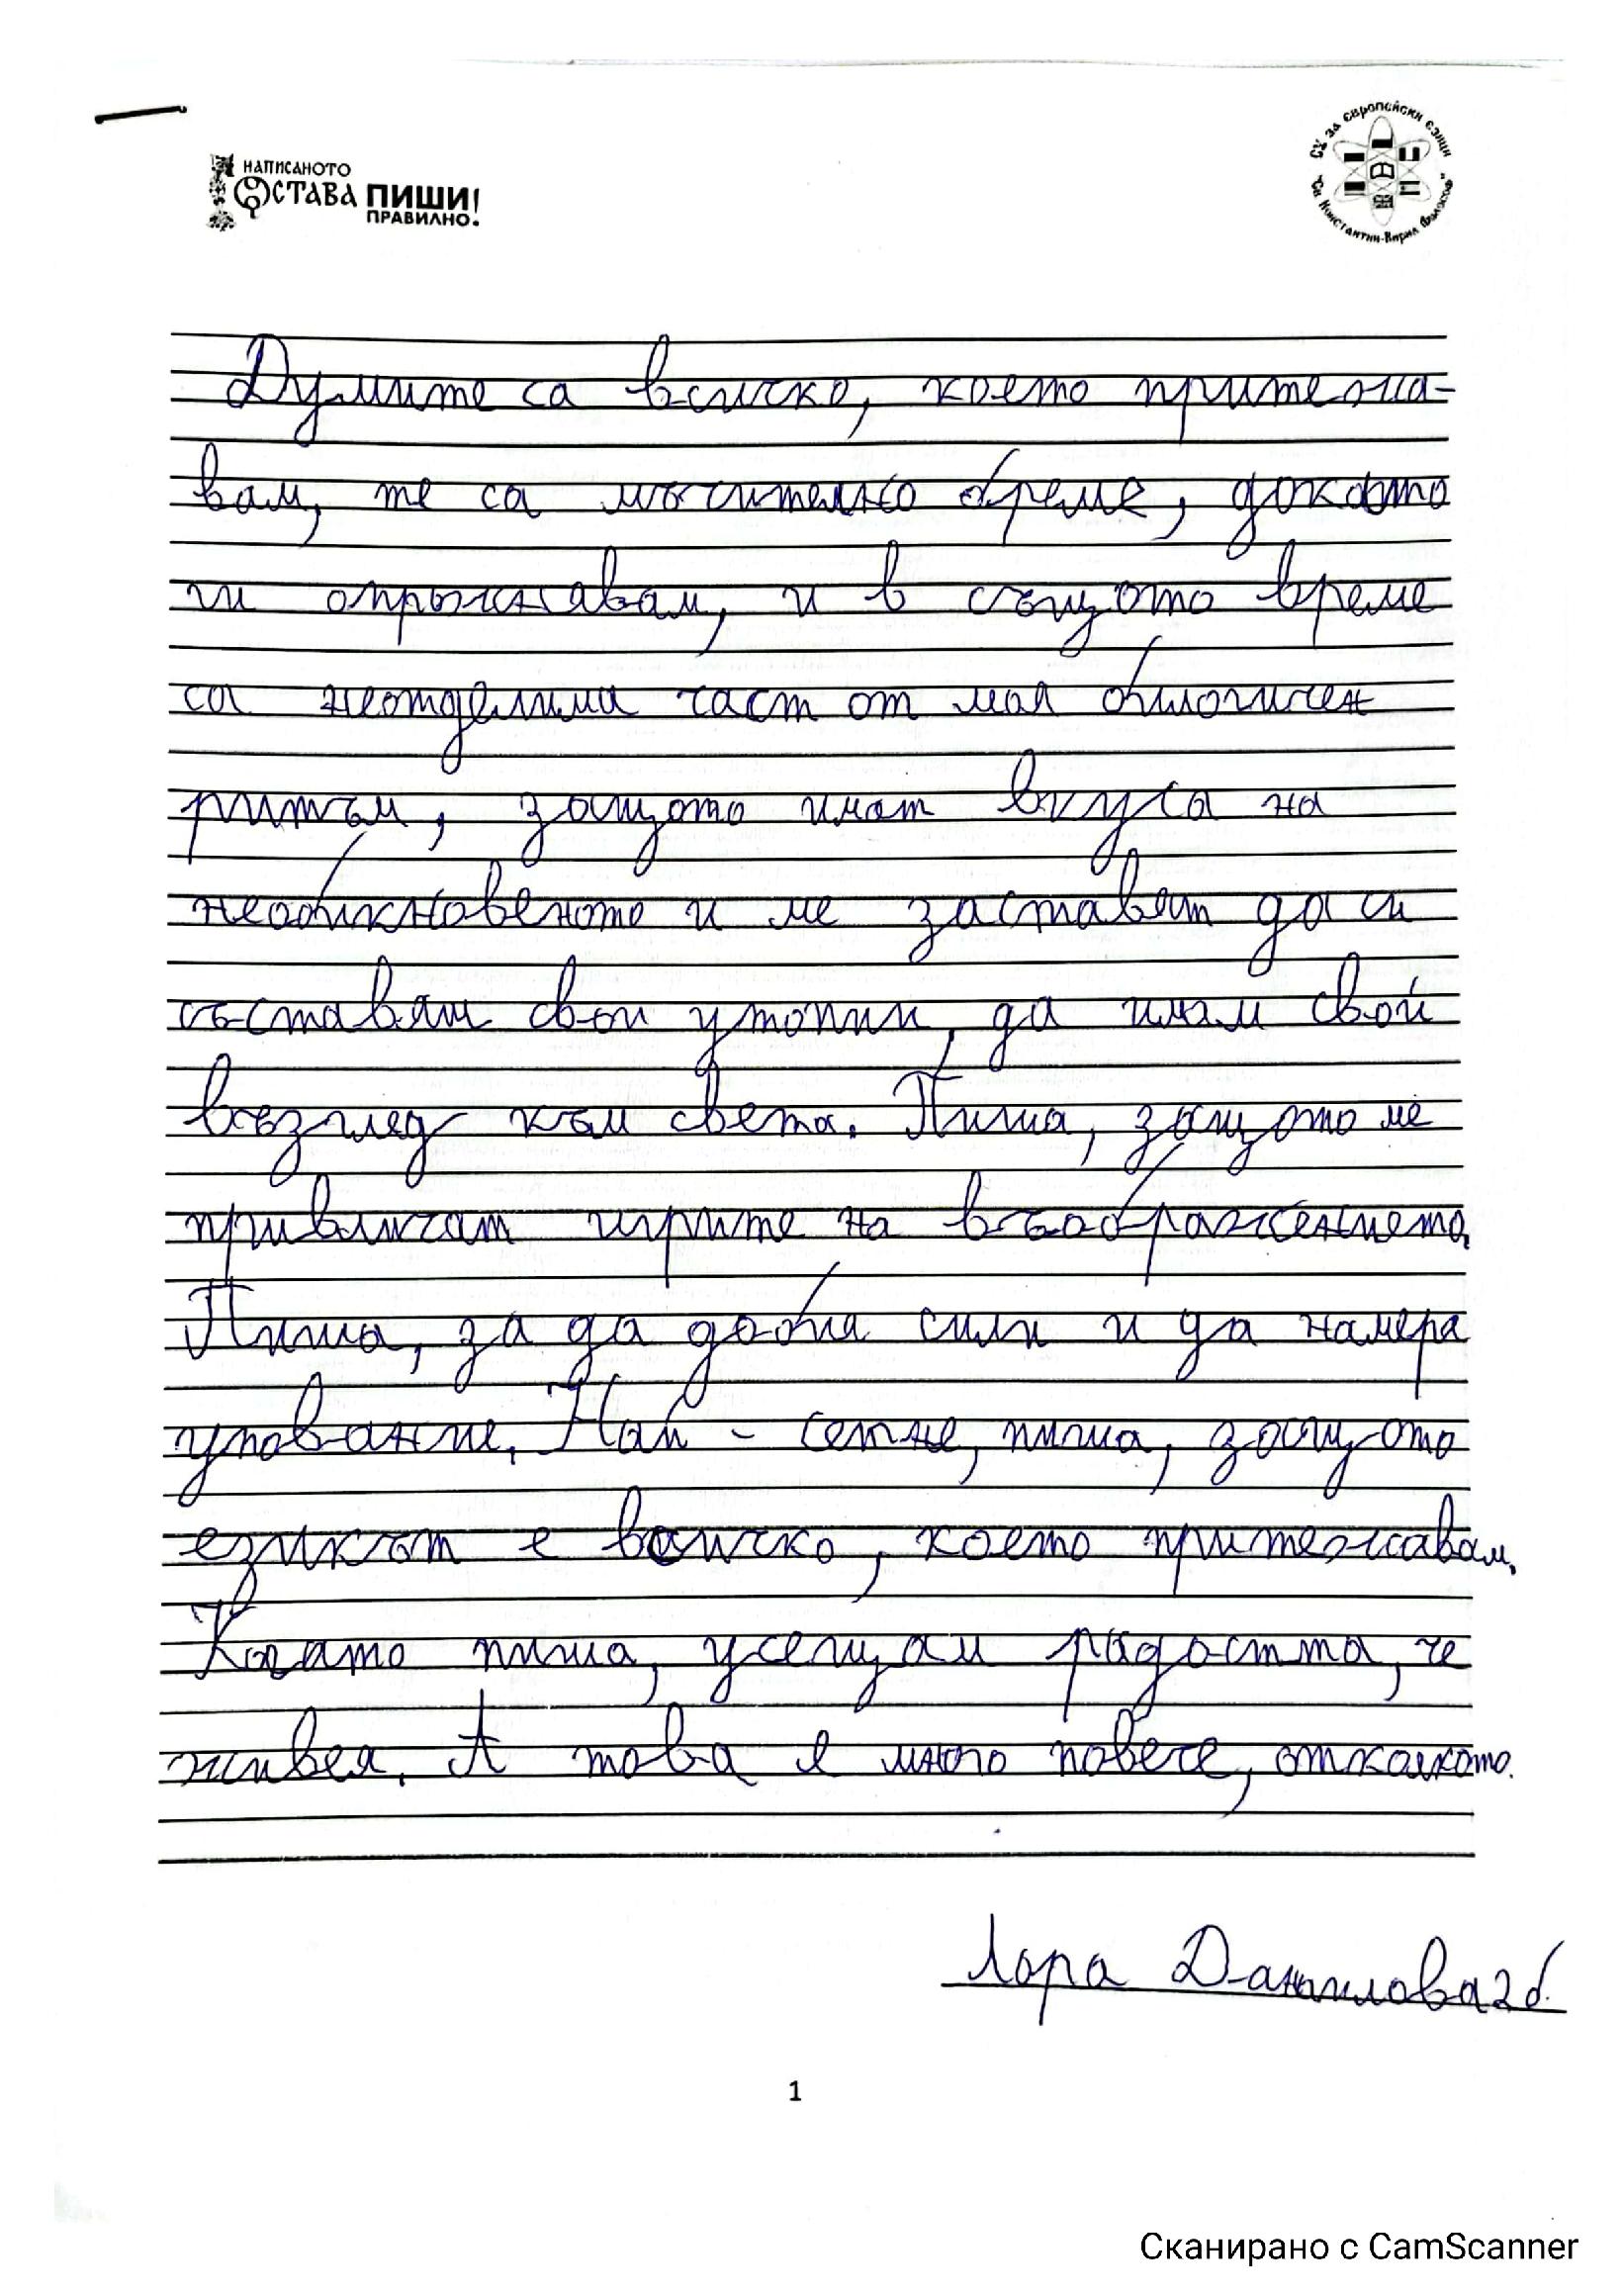 НАПИСАНОТО
ОСТАВА ПИШИ!
ПРАВИЛНО.
СУ за европейски езици
"Св. Константин-Кирил Философ"
Думите са всичко, което притежа-
вам, те са мъчително бреме, докато
ги отричам, и в същото време
са неотделима част от моя биологичен
ритъм, защото имат вкуса на
необикновеното и ме заставят да си
съставям свои утопии, да имам свой
възглед към света. Пиша, защото ме
привличат игрите на въображението.
Пиша, за да добия сили и да намеря
упование. Най - сетне, пиша, защото
езикът е всичко, което притежавам.
Когато пиша, усещам радостта, че
живея. А това е много повече, отколкото.
Лора Данаилова 2б.
1
Сканирано с CamScanner